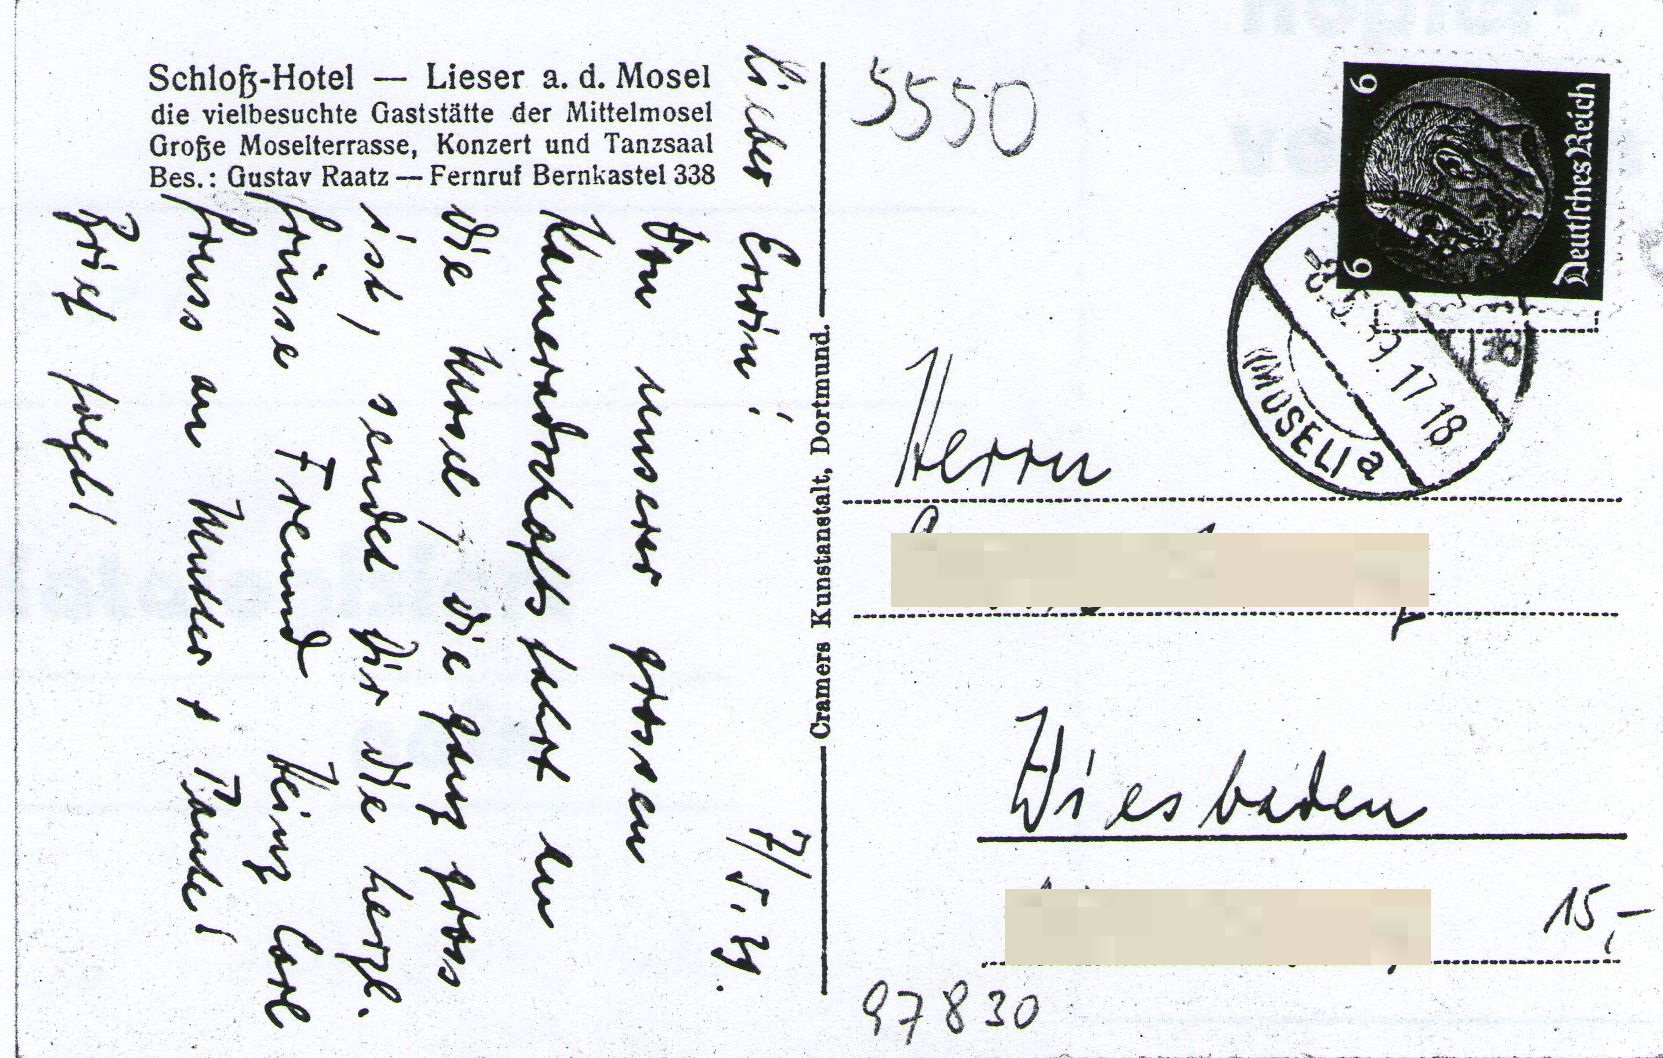 Schloß-Hotel — Lieser a. d. Mosel
die vielbesuchte Gaststätte der Mittelmosel
Große Moselterrasse, Konzert und Tanzsaal
Bes.: Gustav Raatz — Fernruf Bernkastel 338
7/5.39.
Lieber Erwin!
Von unserer grossen
Kameradschaftsfahrt an
die Mosel, die ganz gross
ist, sendet Dir die herzl.
Grüsse Freund Heinz Carl
Gruss an Mutter + Tante!
Brief folgt!
Cramers Kunstanstalt, Dortmund.
5550
6
6
Deutsches Reich
8.5.39.17-18
(MOSEL) a
Herrn
Wiesbaden
15,-
97830